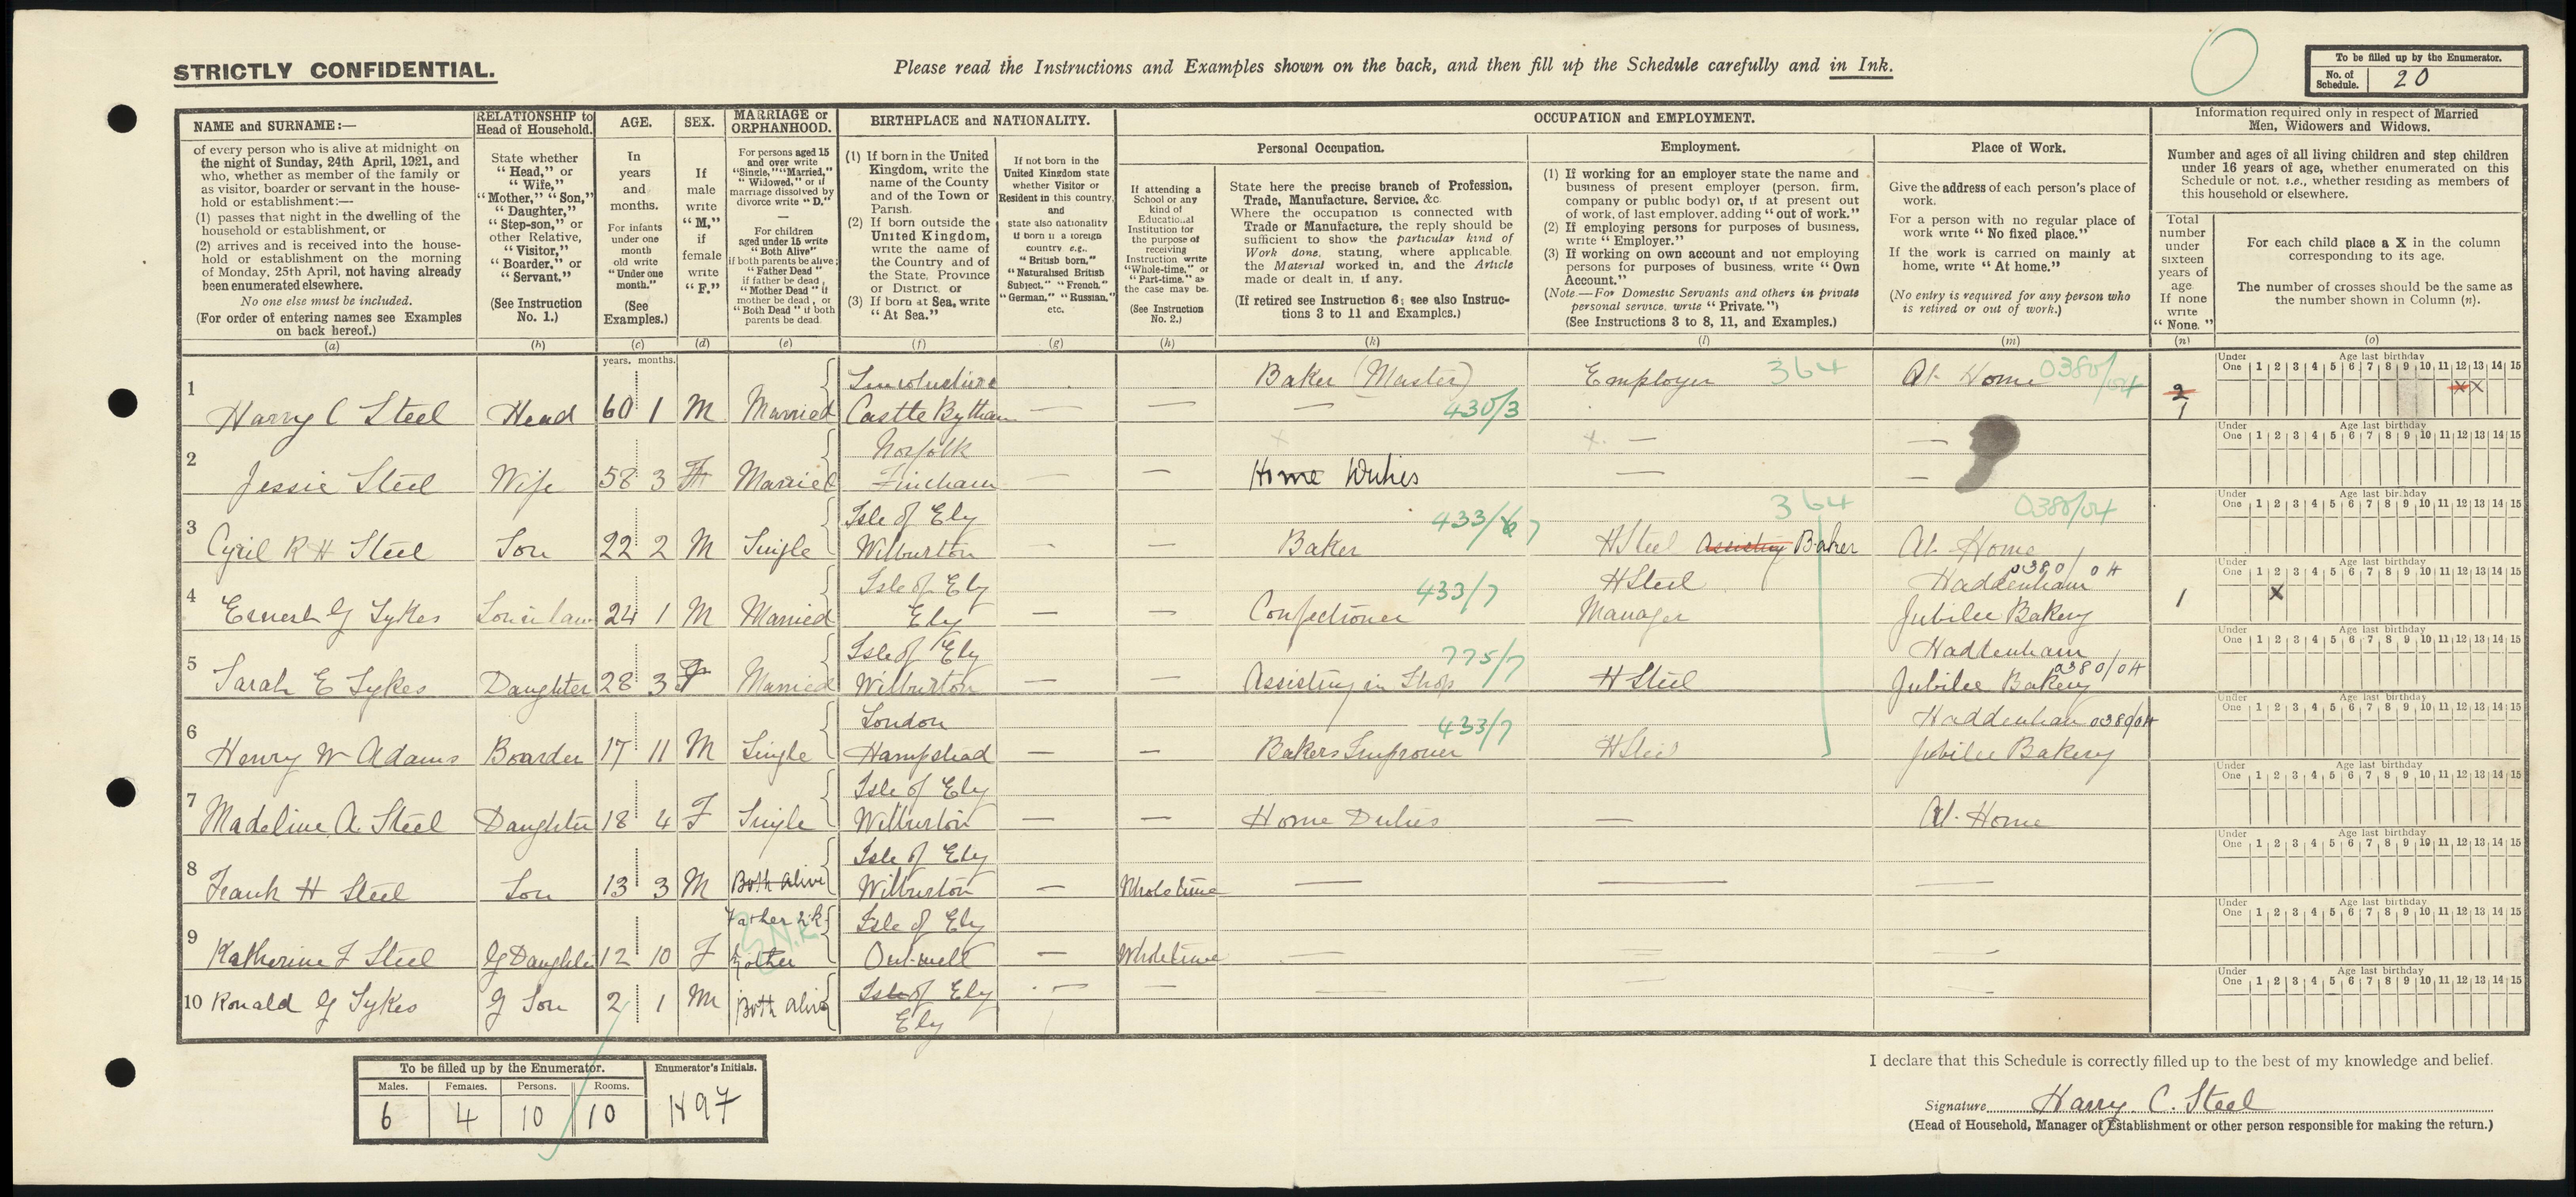 STRICTLY CONFIDENTIAL.
Please read the Instructions and Examples shown on the back, and then fill up the Schedule carefully and in Ink.
To be filled up by the Enumerator.
No. of Schedule. 20
NAME and SURNAME:—
of every person who is alive at midnight on
the night of Sunday, 24th April, 1921, and
who, whether as member of the family or
as visitor, boarder or servant in the house-
hold or establishment:—
(1) passes that night in the dwelling of the
household or establishment, or
(2) arrives and is received into the house-
hold or establishment on the morning
of Monday, 25th April, not having already
been enumerated elsewhere.
No one else must be included.
(For order of entering names see Examples
on back hereof.)
(a)
RELATIONSHIP to
Head of Household.
State whether
"Head," or
"Wife,"
"Mother," "Son,"
"Daughter,"
"Step-son," or
other Relative,
"Visitor,"
"Boarder," or
"Servant."
(See Instruction
No. 1.)
(b)
AGE.
In
years
and
months.
For infants
under one
month
old write
"Under one
month."
(See
Examples.)
(c)
SEX.
If
male
write
"M,"
if
female
write
"F."
(d)
MARRIAGE or
ORPHANHOOD.
For persons aged 15
and over write
"Single," "Married,"
"Widowed," or if
marriage dissolved by
divorce write "D."
For children
aged under 15 write
"Both Alive"
if both parents be alive;
"Father Dead"
if father be dead,
"Mother Dead" if
mother be dead, or
"Both Dead" if both
parents be dead.
(e)
BIRTHPLACE and NATIONALITY.
(1) If born in the United
Kingdom, write the
name of the County
and of the Town or
Parish.
(2) If born outside the
United Kingdom,
write the name of
the Country and of
the State, Province
or District, or
(3) If born at Sea, write
"At Sea."
(f)
If not born in the
United Kingdom state
whether Visitor or
Resident in this country,
and
state also nationality
if born in a foreign
country e.g.,
"British born,"
"Naturalised British
Subject," "French,"
"German," "Russian,"
etc.
(g)
OCCUPATION and EMPLOYMENT.
Personal Occupation.
If attending a
School or any
kind of
Educational
Institution for
the purpose of
receiving
Instruction write
"Whole-time," or
"Part-time," as
the case may be.
(See Instruction
No. 2.)
(h)
State here the precise branch of Profession,
Trade, Manufacture, Service, &c.
Where the occupation is connected with
Trade or Manufacture, the reply should be
sufficient to show the particular kind of
Work done, stating, where applicable,
the Material worked in, and the Article
made or dealt in, if any.
(If retired see Instruction 6; see also Instruc-
tions 3 to 11 and Examples.)
(k)
Employment.
(1) If working for an employer state the name and
business of present employer (person, firm,
company or public body) or, if at present out
of work, of last employer, adding "out of work."
(2) If employing persons for purposes of business,
write "Employer."
(3) If working on own account and not employing
persons for purposes of business, write "Own
Account."
(Note—For Domestic Servants and others in private
personal service, write "Private.")
(See Instructions 3 to 8, 11, and Examples.)
(l)
Place of Work.
Give the address of each person's place of
work.
For a person with no regular place of
work write "No fixed place."
If the work is carried on mainly at
home, write "At home."
(No entry is required for any person who
is retired or out of work.)
(m)
Information required only in respect of Married
Men, Widowers and Widows.
Number and ages of all living children and step children
under 16 years of age, whether enumerated on this
Schedule or not, i.e., whether residing as members of
this household or elsewhere.
Total
number
under
sixteen
years of
age.
If none
write
"None."
(n)
For each child place a X in the column
corresponding to its age.
The number of crosses should be the same as
the number shown in Column (n).
(o)
years. months.
Under One Age last birthday 1 2 3 4 5 6 7 8 9 10 11 12 13 14 15
1 Harry C Steel Head 60 1 M Married Lincolnshire Castle Bytham — — Baker (Master) — 430/3 Employer 364 At Home 0380/04 2 1 X X
Under One Age last birthday 1 2 3 4 5 6 7 8 9 10 11 12 13 14 15
2 Jessie Steel Wife 58 3 F Married Norfolk Fincham — — Home Duties — —
Under One Age last birthday 1 2 3 4 5 6 7 8 9 10 11 12 13 14 15
3 Cyril R H Steel Son 22 2 M Single Isle of Ely Wilburton — — Baker 433/6 7 H Steel Assisting Baker 364 At Home 0380/04
Under One Age last birthday 1 2 3 4 5 6 7 8 9 10 11 12 13 14 15
4 Ernest G Sykes Son in law 24 1 M Married Isle of Ely Ely — — Confectioner 433/7 H Steel Manager Haddenham 0380/04 Jubilee Bakery 1 X
Under One Age last birthday 1 2 3 4 5 6 7 8 9 10 11 12 13 14 15
5 Sarah E Sykes Daughter 28 3 F Married Isle of Ely Wilburton — — Assisting in Shop 775/7 H Steel Haddenham Jubilee Bakery 0380/04
Under One Age last birthday 1 2 3 4 5 6 7 8 9 10 11 12 13 14 15
6 Henry W Adams Boarder 17 11 M Single London Hampstead — — Bakers Improver 433/7 H Steel Haddenham 0380/04 Jubilee Bakery
Under One Age last birthday 1 2 3 4 5 6 7 8 9 10 11 12 13 14 15
7 Madeline A. Steel Daughter 18 4 F Single Isle of Ely Wilburton — — Home Duties — At Home
Under One Age last birthday 1 2 3 4 5 6 7 8 9 10 11 12 13 14 15
8 Frank H Steel Son 13 3 M Both Alive Isle of Ely Wilburton — Whole time — — —
Under One Age last birthday 1 2 3 4 5 6 7 8 9 10 11 12 13 14 15
9 Katherine F Steel G Daughter 12 10 F Father Mother Isle of Ely Outwell — Whole time — — —
Under One Age last birthday 1 2 3 4 5 6 7 8 9 10 11 12 13 14 15
10 Ronald G Sykes G Son 2 1 M Both Alive Isle of Ely Ely — — — — —
To be filled up by the Enumerator.
Enumerator's Initials.
Males. Females. Persons. Rooms.
6 4 10 10
I declare that this Schedule is correctly filled up to the best of my knowledge and belief.
Signature Harry C. Steel
(Head of Household, Manager of Establishment or other person responsible for making the return.)